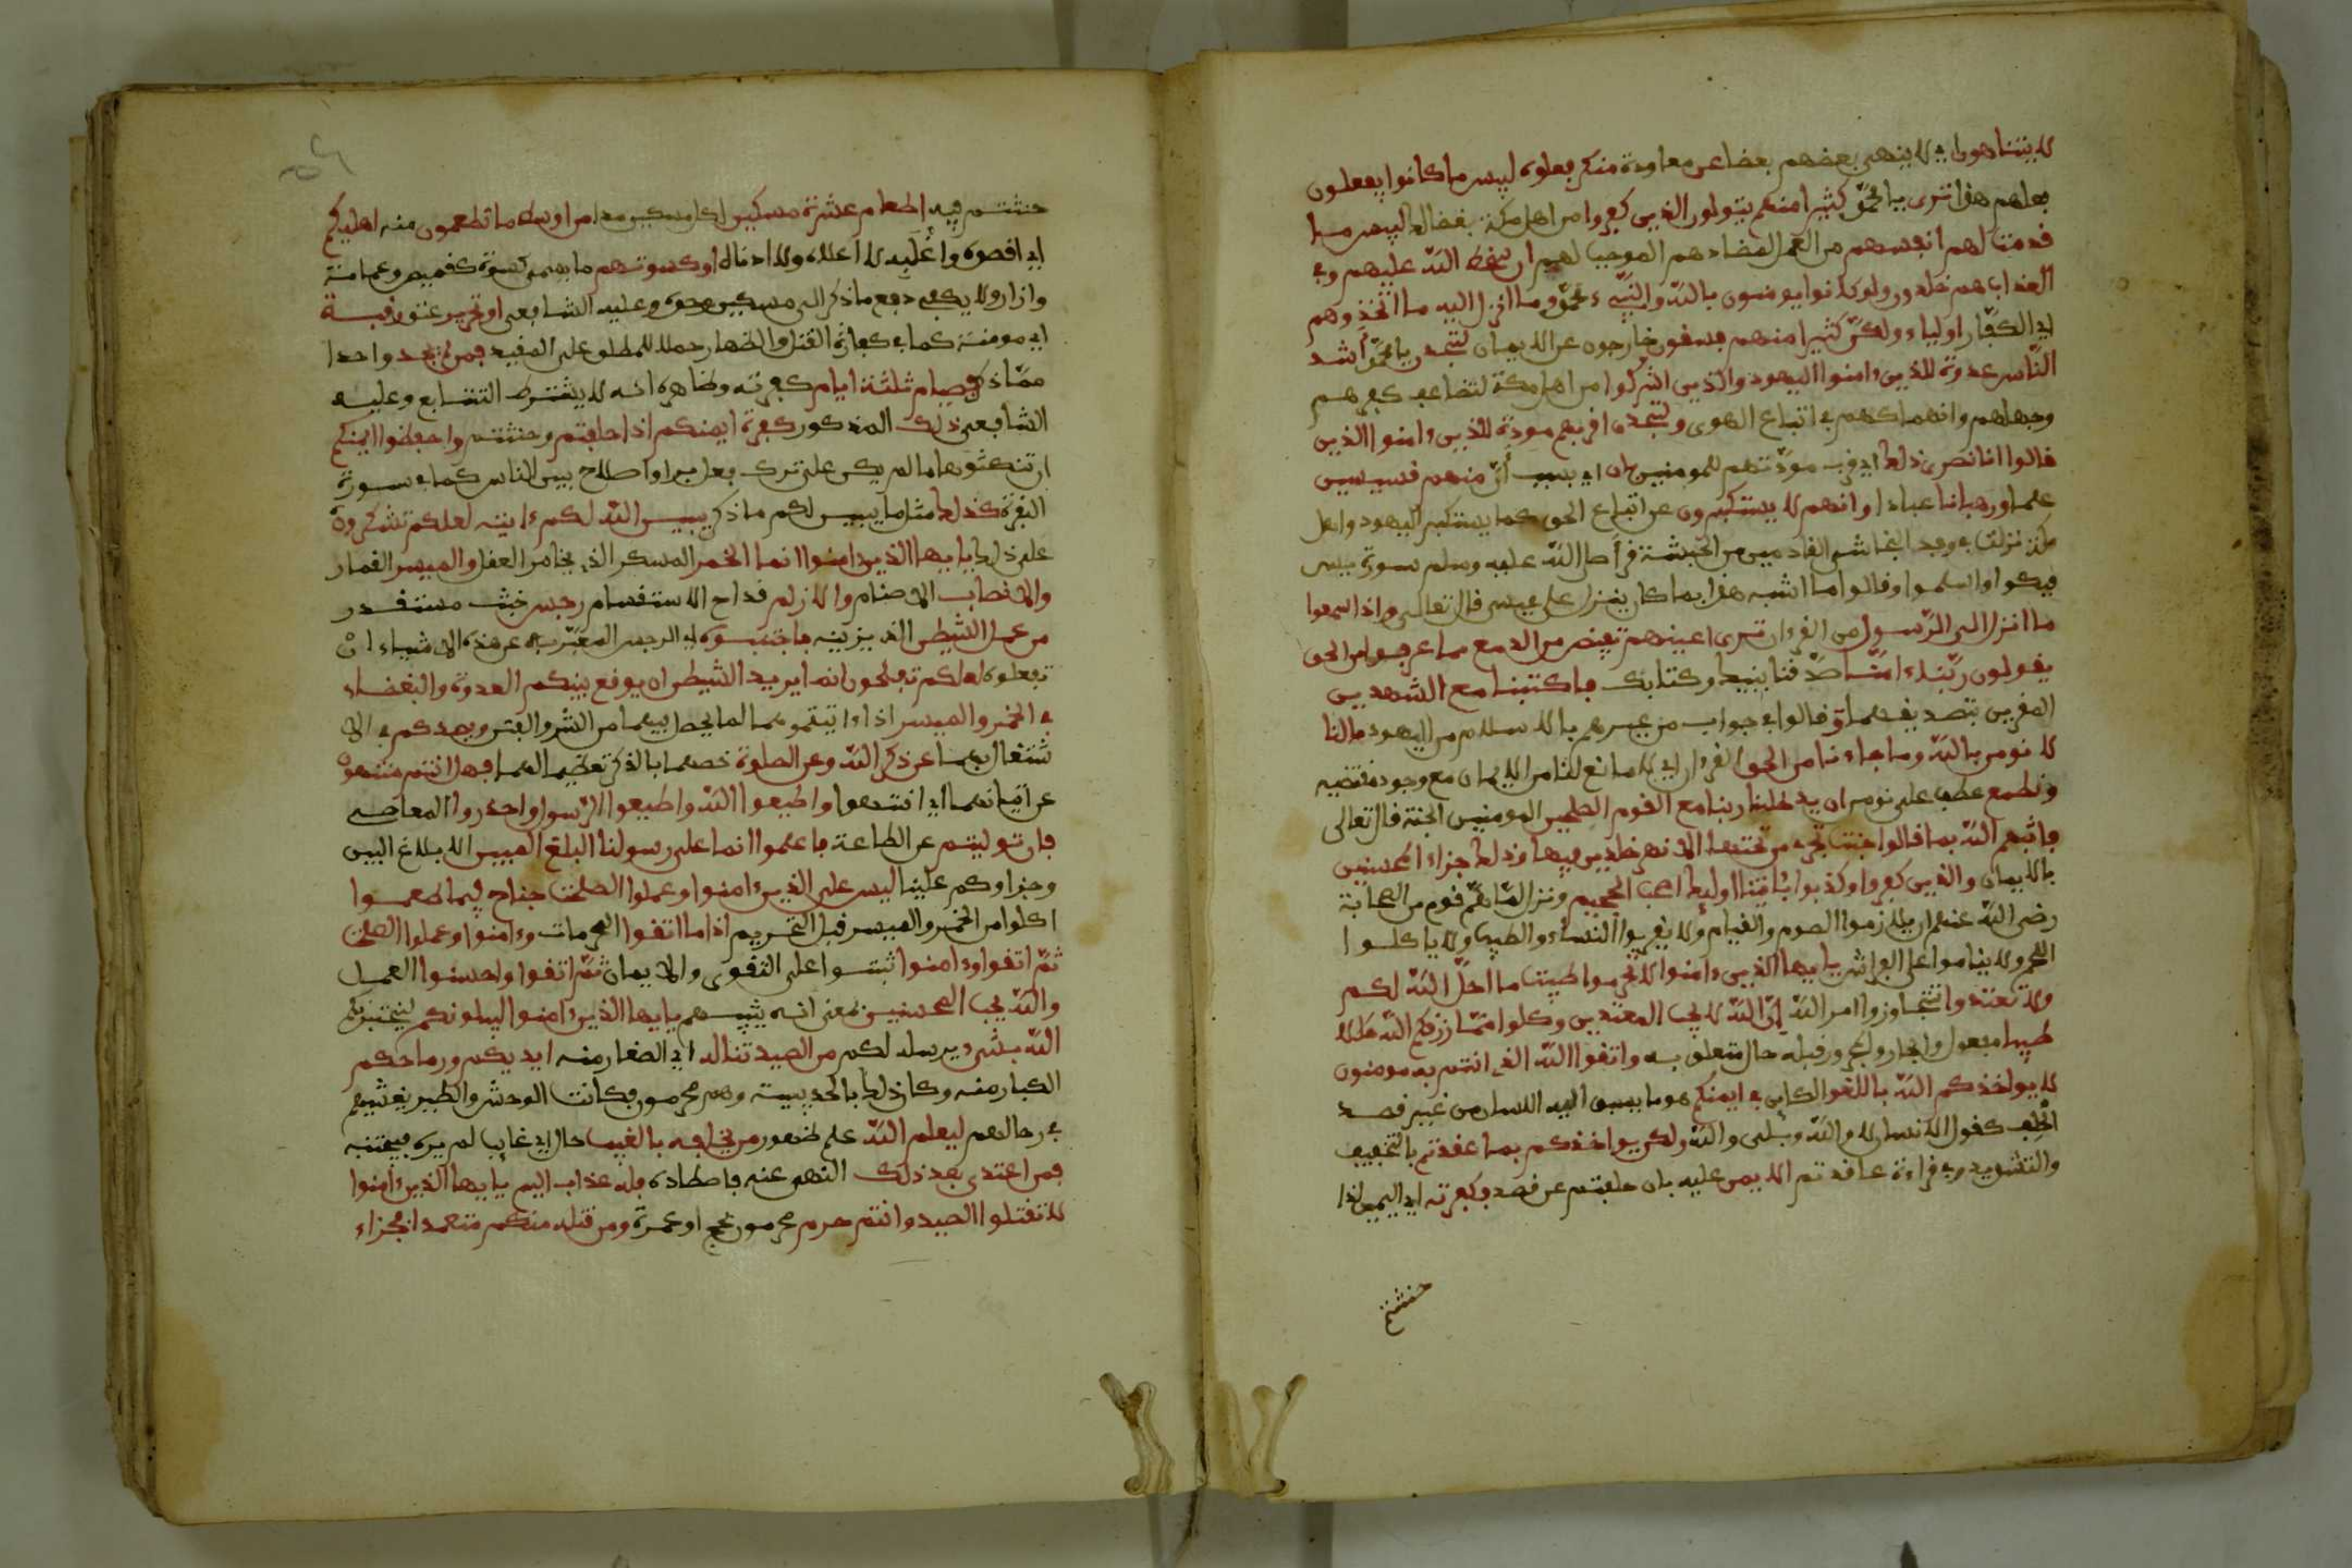 لا يتناهون اي لا ينهى بعضهم بعضا عن معاودة منكر فعلوه لبيس ما كانوا يفعلون
فعلهم هذا ترى يا محمّد كثيرا منهم يتولون الذين كفروا من اهل مكة بغضا لك لبيس ما
قدمت لهم انفسهم من العمل لمعادهم الموجب لهم ان سخط الله عليهم وفي
العذاب هم خلدون ولو كانوا يومنون بالله والنبيء محمّد وما انزل اليه ما اتخذوهم
اي الكفّار اولياء ولكنّ كثيرا منهم فسقون خارجون عن الايمان لتجدن يا محمّد أشد
النّاس عدوة للذين ءامنوا اليهود والذين اشركوا من اهل مكة لتضاعف كفرهم
وجهلهم وانهماكهم في اتباع الهوى ولتجدن اقربهم مودة للذين ءامنوا الذين
قالوا انا نصرى ذلك اي قرب مودّتهم للمومنين بان اي بسبب أنّ منهم قسيسين
علماء ورهبانا عبادا وانهم لا يستكبرون عن اتباع الحق كما يستكبر اليهود واهل
مكة نزلت في وفد النجاشي القادمين من الحبشة قرأ صلى الله عليه وسلم سورة يس
فبكوا واسلموا وقالوا ما اشبه هذا بما كان ينزل على عيسى قال تعالى واذا سمعوا
ما انزل الى الرّسول من القرءان ترى اعينهم تفيض من الدمع مما عرفوا من الحق
يقولون ربّنا ءامنّا صدّقنا بنبيك وكتابك فاكتبنا مع الشهدين
المقرين بتصديقهما و قالوا في جواب من عيرهم بالاسلام من اليهود ما لنا
لا نومن بالله وما جاءنا من الحق القرءان اي لا مانع لنا من الايمان مع وجود مقتضيه
ونطمع عطف على نومن ان يدخلنا ربنا مع القوم الصلحين المومنين الجنة قال تعالى
فاثبهم الله بما قالوا جنت تجري من تحتها الانهر خلدين فيها وذلك جزاء المحسنين
بالايمان والذين كفروا وكذبوا بئايتنا اوليك اصحب الجحيم ونزل لمّا همّ قوم من الصحابة
رضي الله عنهم ان يلازموا الصوم والقيام ولا يقربوا النساء والطيب ولا ياكلوا
اللحم ولا يناموا على الفراش يايها الذين ءامنوا لا تحرموا طيبت ما احلّ الله لكم
ولا تعتدوا تتجاوزوا امر الله انّ الله لا يحب المعتدين وكلوا ممّا رزقكم الله حللا
طيبا مفعول والجار والمجرور قبله حال متعلق به واتقوا الله الذي انتم به مومنون
لا يواخذكم الله باللغو الكاين في ايمنكم هو ما يسبق اليه اللسان من غير قصد
الحلف كقول الانسان لا والله وبلى والله ولكن يواخذكم بما عقدتم بالتخفيف
والتشديد وفي قراءة عاقدتم الايمن عليه بان حلفتم عن قصد فكفرته اي اليمين اذا
حنثتم
حنثتم فيه اطعام عشرة مسكين لكل مسكين مد من اوسط ما تطعمون منه اهليكم
اي اقصده وأغلبه لا اعلاه ولا ادناه او كسوتهم ما يسمى كسوة كقميص وعمامة
وازار ولا يكفي دفع ما ذكر الى مسكين وحده وعليه الشافعي او تحرير عتق رقبة
اي مومنة كما في كفارة القتل والظهار حملا للمطلق على المقيد فمن لم يجد واحدا
ممّا ذكر فصيام ثلثة ايام كفرته وظاهره انه لا يشترط التتابع وعليه
الشافعي ذلك المذكور كفرة ايمنكم اذا حلفتم وحنثتم واحفظوا ايمنكم
ان تنكثوها ما لم يكن على ترك فعل بر او اصلاح بين الناس كما في سورة
البقرة كذلك مثل ما يبين لكم ما ذكر يبين الله لكم ءايته لعلكم تشكرون
على ذلك يايها الذين ءامنوا انما الخمر المسكر الذي يخامر العقل والميسر القمار
والانصاب الاصنام والازلم قداح الاستقسام رجس خبث مستقذر
من عمل الشيطن الذي يزينه فاجتنبوه اي الرجس المعبّر به عن هذه الاشياء ان
تفعلوه لعلكم تفلحون انما يريد الشيطن ان يوقع بينكم العدوة والبغضاء
في الخمر والميسر اذا اتيتموهما لما يحصل فيهما من الشر والفتن ويصدكم في الا
شتغال بهما عن ذكر الله وعن الصلوة خصهما بالذكر تعظيما لهما فهل انتم منتهون
عن اتيانهما اي انتهوا واطيعوا الله واطيعوا الرّسول واحذروا المعاصي
فان توليتم عن الطاعة فاعلموا انما على رسولنا البلغ المبين الابلاغ البين
وجزاوكم علينا ليس على الذين ءامنوا وعملوا الصلحت جناح فيما طعموا
اكلوا من الخمر والميسر قبل التحريم اذا ما اتقوا المحرمات وءامنوا وعملوا الصلحت
ثمّ اتقوا وءامنوا ثبتوا على التقوى والايمان ثمّ اتقوا واحسنوا العمل
والله يحب المحسنين بمعنى انه يثيبهم يايها الذين ءامنوا ليبلونكم ليختبرنكم
الله بشيء يرسله لكم من الصيد تناله اي الصغار منه ايديكم ورماحكم
الكبار منه وكان ذلك بالحديبية وهم محرمون فكانت الوحش والطير يغشيهم
في رحالهم ليعلم الله علم ظهور من يخافه بالغيب حال اي غايب لم يره فيجتنبه
فمن اعتدى بعد ذلك النهي عنه فاصطاده فله عذاب اليم يايها الذين ءامنوا
لا تقتلوا الصيد وانتم حرم محرمون بحج او عمرة ومن قتله منكم متعمدا فجزاء